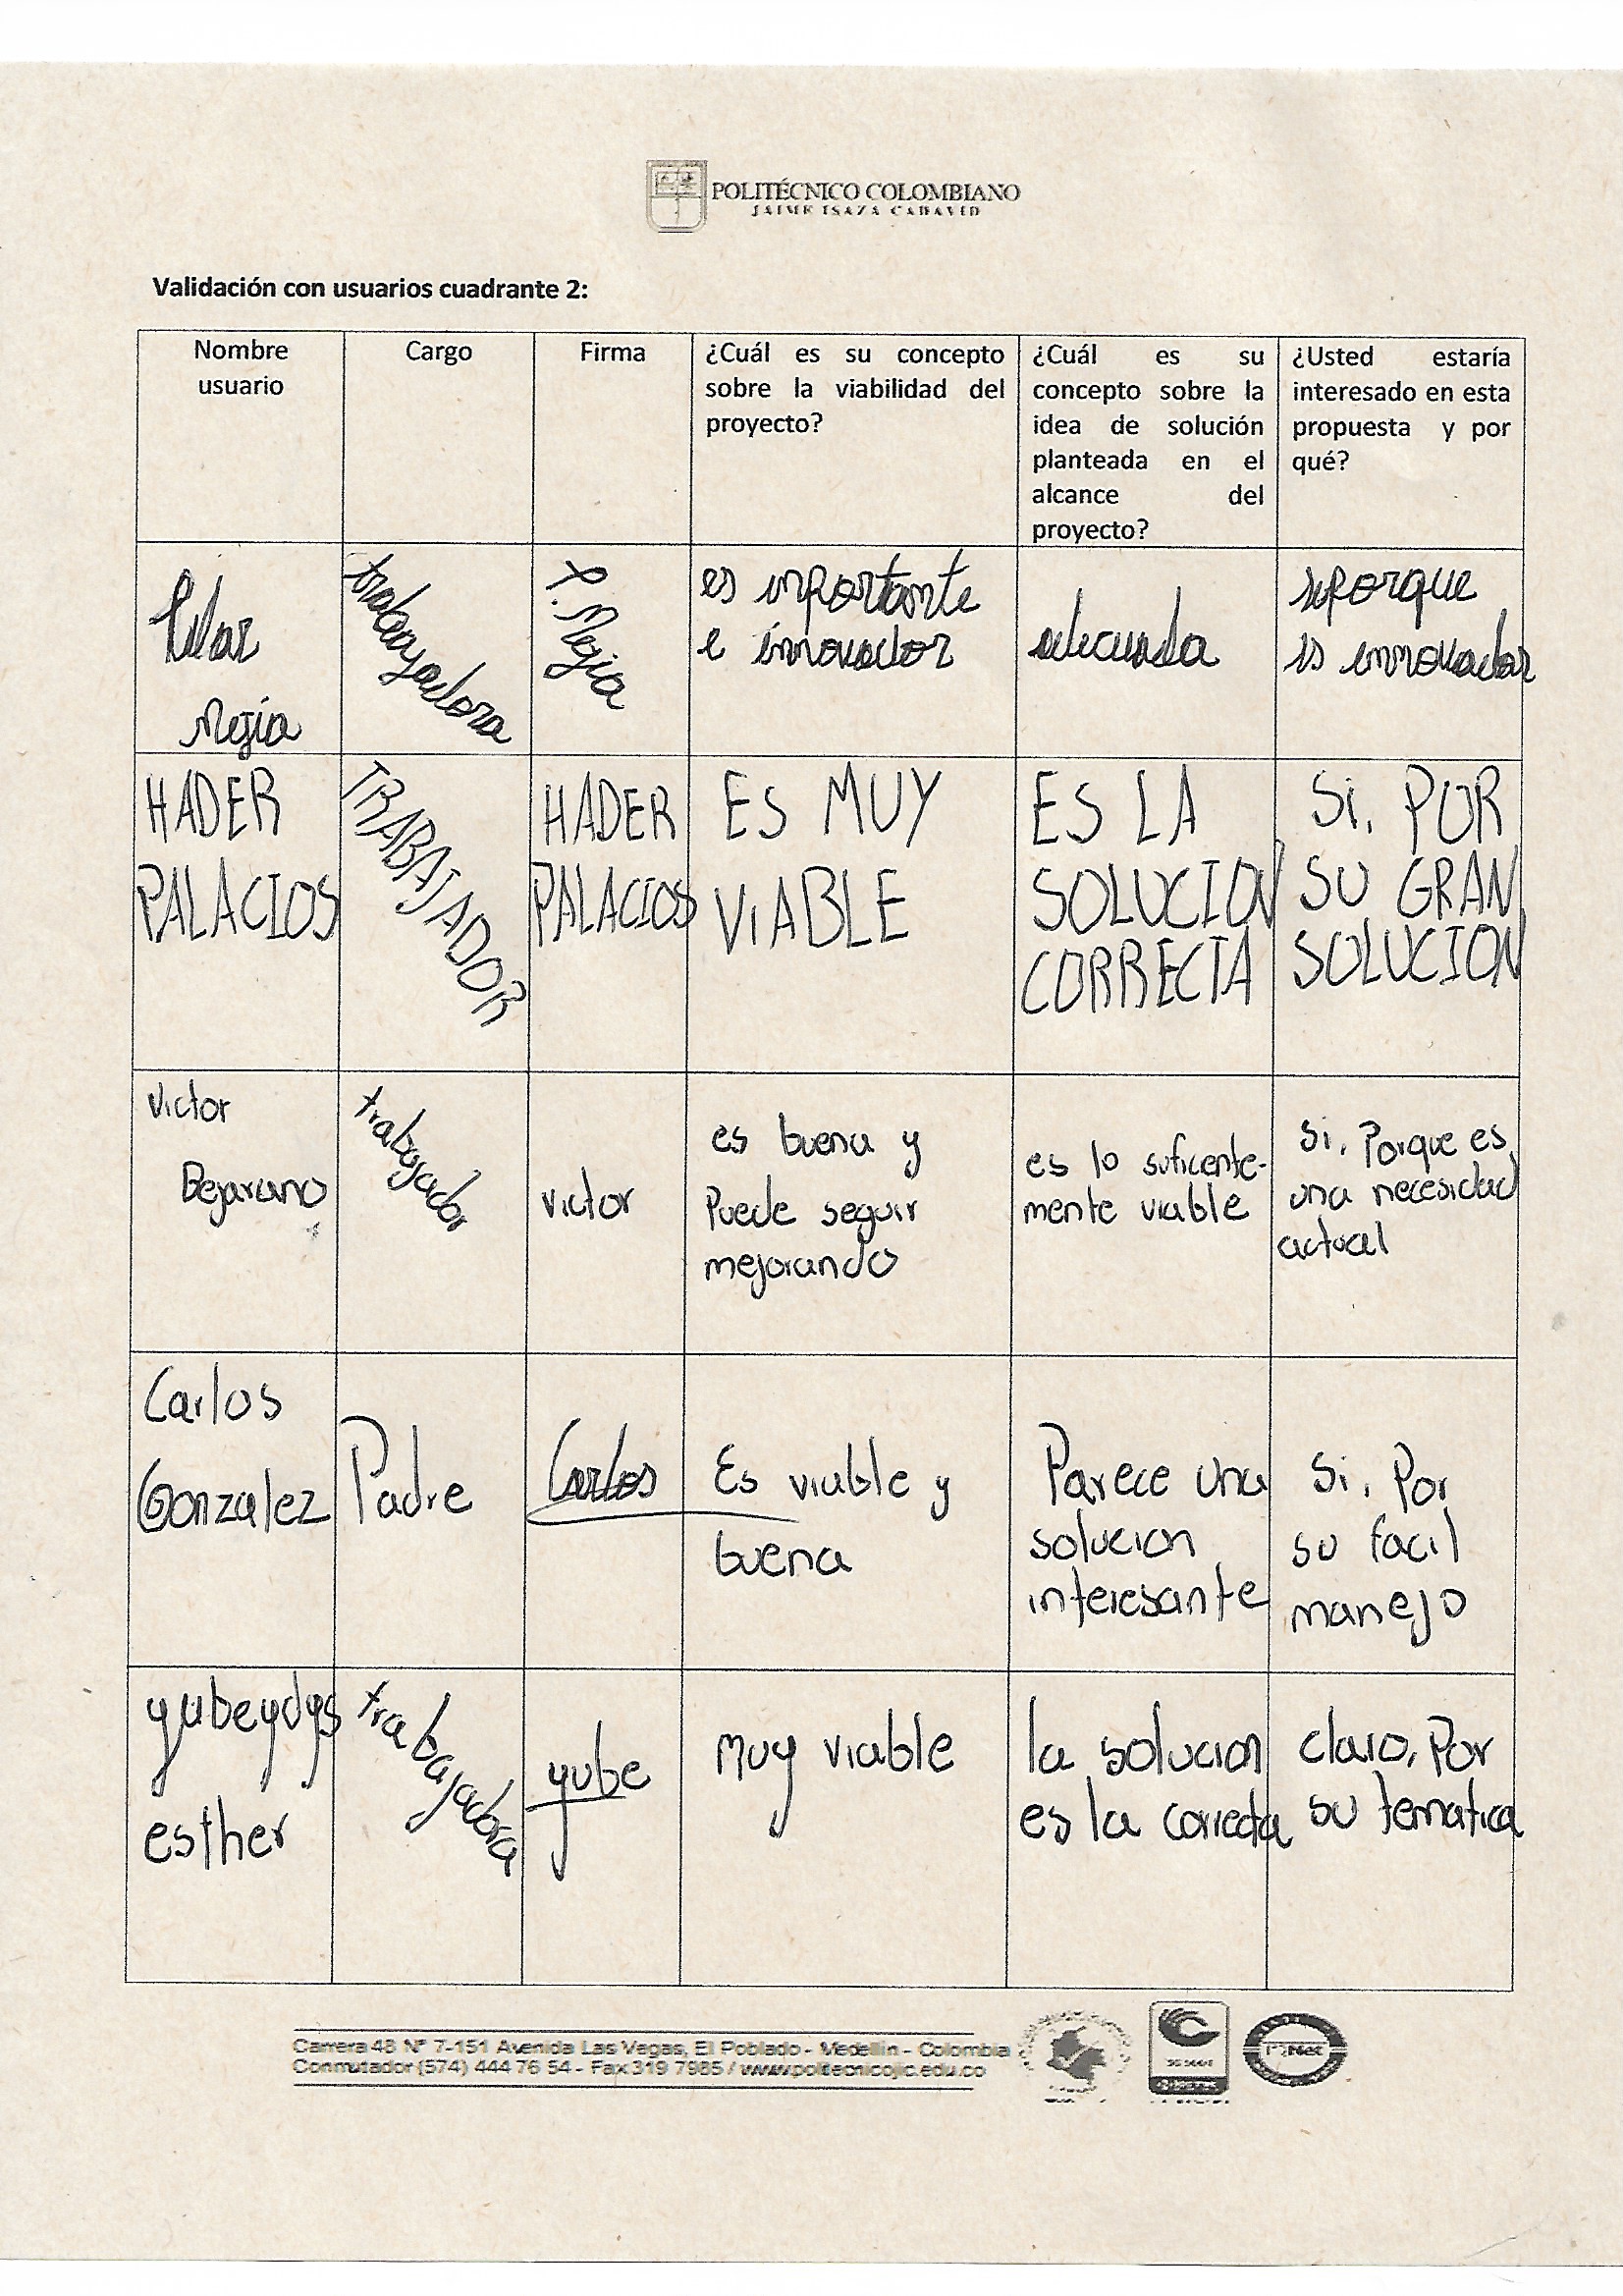 POLITÉCNICO COLOMBIANO
JAIME ISAZA CADAVID
Validación con usuarios cuadrante 2:
Nombre
usuario
Cargo
Firma
¿Cuál es su concepto
sobre la viabilidad del
proyecto?
¿Cuál es su
concepto sobre la
idea de solución
planteada en el
alcance del
proyecto?
¿Usted estaría
interesado en esta
propuesta y por
qué?
Pilar
Mejia
trabajadora
P. Mejia
es inportante
e innovador
adecuada
si porque
es innovador
HADER
PALACIOS
TRABAJADOR
HADER
PALACIOS
ES MUY
VIABLE
ES LA
SOLUCION
CORRECTA
Si, POR
SU GRAN
SOLUCION
Victor
Bejarano
trabajador
victor
es buena y
Puede seguir
mejorando
es lo suficente-
mente viable
Si, Porque es
una necesidad
actual
Carlos
Gonzalez
Padre
Carlos
Es viable y
buena
Parece una
solucion
interesante
Si, Por
su facil
manejo
yubeydys
esther
trabajadora
yube
muy viable
la solucion
es la correcta
claro, Por
su tematica
Carrera 48 N° 7-151 Avenida Las Vegas, El Poblado - Medellín - Colombia
Conmutador (574) 444 76 54 - Fax 319 7985 / www.politecnicojic.edu.co